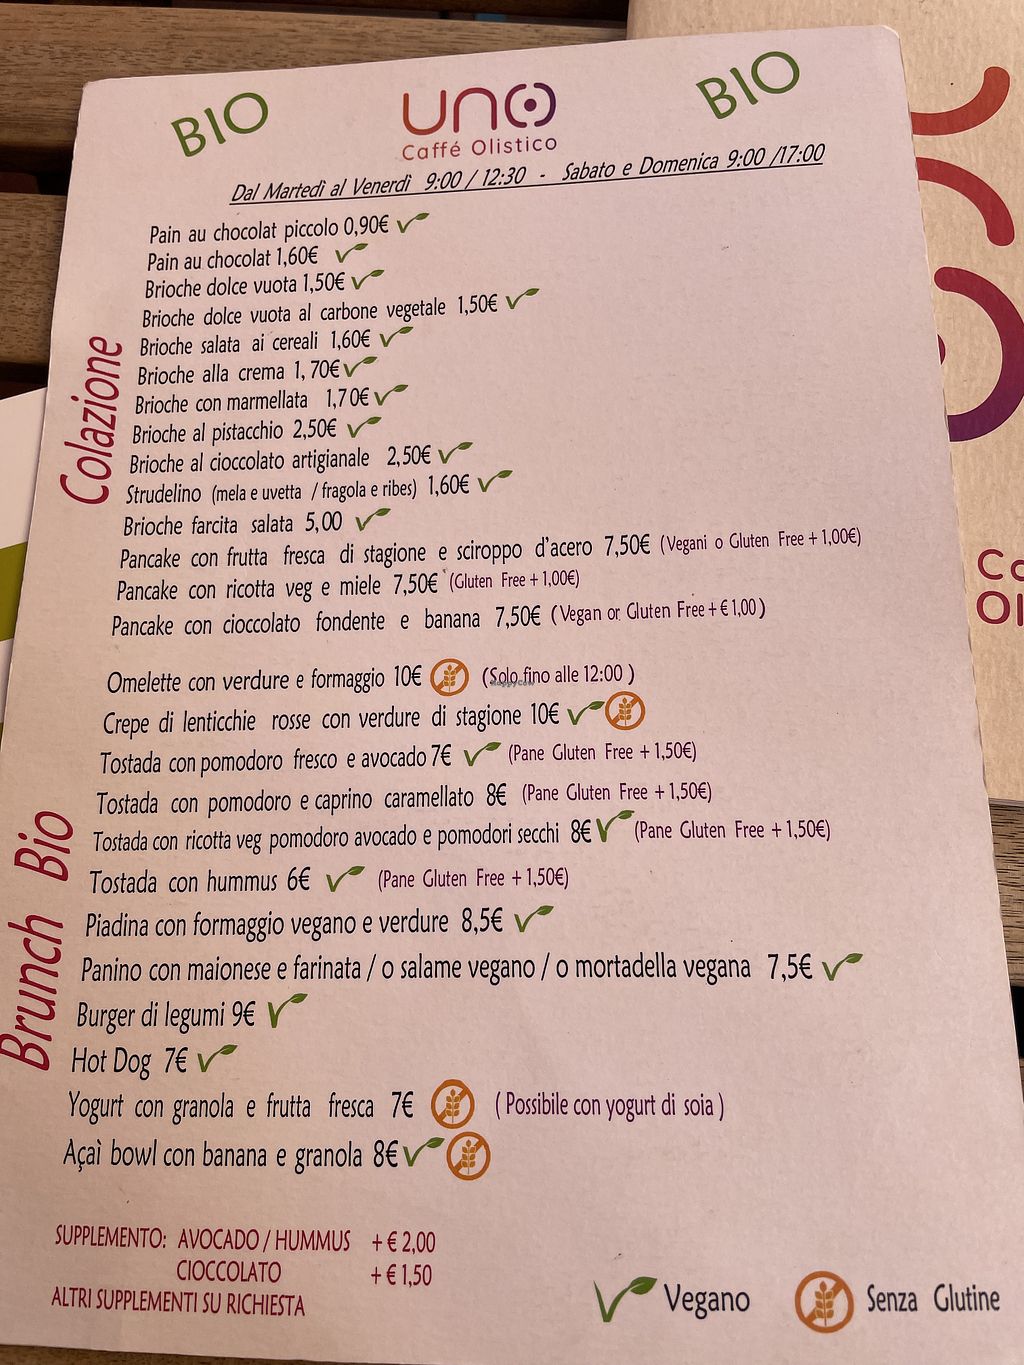 BIO
UNO
BIO
Caffé Olistico
Dal Martedì al Venerdì 9:00 / 12:30 - Sabato e Domenica 9:00 /17:00
Colazione
Pain au chocolat piccolo 0,90€
Pain au chocolat 1,60€
Brioche dolce vuota 1,50€
Brioche dolce vuota al carbone vegetale 1,50€
Brioche salata ai cereali 1,60€
Brioche alla crema 1,70€
Brioche con marmellata 1,70€
Brioche al pistacchio 2,50€
Brioche al cioccolato artigianale 2,50€
Strudelino (mela e uvetta / fragola e ribes) 1,60€
Brioche farcita salata 5,00
Pancake con frutta fresca di stagione e sciroppo d'acero 7,50€ (Vegani o Gluten Free + 1,00€)
Pancake con ricotta veg e miele 7,50€ (Gluten Free + 1,00€)
Pancake con cioccolato fondente e banana 7,50€ (Vegan or Gluten Free + € 1,00)
Brunch Bio
Omelette con verdure e formaggio 10€ (Solo fino alle 12:00 )
Crepe di lenticchie rosse con verdure di stagione 10€
Tostada con pomodoro fresco e avocado 7€ (Pane Gluten Free + 1,50€)
Tostada con pomodoro e caprino caramellato 8€ (Pane Gluten Free + 1,50€)
Tostada con ricotta veg pomodoro avocado e pomodori secchi 8€ (Pane Gluten Free + 1,50€)
Tostada con hummus 6€ (Pane Gluten Free + 1,50€)
Piadina con formaggio vegano e verdure 8,5€
Panino con maionese e farinata / o salame vegano / o mortadella vegana 7,5€
Burger di legumi 9€
Hot Dog 7€
Yogurt con granola e frutta fresca 7€ ( Possibile con yogurt di soia )
Açaì bowl con banana e granola 8€
SUPPLEMENTO: AVOCADO / HUMMUS + € 2,00
CIOCCOLATO + € 1,50
ALTRI SUPPLEMENTI SU RICHIESTA
Vegano
Senza Glutine
HappyCow
Ca
Ol